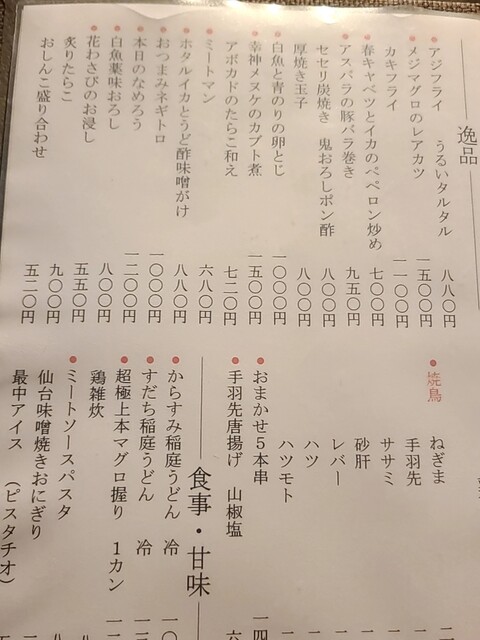 逸品
アジフライ　うるいタルタル　八八〇円
メジマグロのレアカツ　一五〇〇円
カキフライ　一一〇〇円
春キャベツとイカのペペロン炒め　七〇〇円
アスパラの豚バラ巻き　九五〇円
セセリ炭焼き　鬼おろしポン酢　八〇〇円
厚焼き玉子　八〇〇円
白魚と青のりの卵とじ　一〇〇〇円
幸神メヌケのカブト煮　一五〇〇円
アボカドのたらこ和え　七二〇円
ミートマン　六八〇円
ホタルイカとうど酢味噌がけ　八八〇円
おつまみネギトロ　一〇〇〇円
本日のなめろう　一二〇〇円
白魚薬味おろし　八〇〇円
花わさびのお浸し　五五〇円
炙りたらこ　九〇〇円
おしんこ盛り合わせ　五二〇円
焼鳥
ねぎま
手羽先
ササミ
砂肝
レバー
ハツ
ハツモト
おまかせ５本串
手羽先唐揚げ　山椒塩
食事・甘味
からすみ稲庭うどん　冷
すだち稲庭うどん　冷
超極上本マグロ握り　１カン
鶏雑炊
ミートソースパスタ
仙台味噌焼きおにぎり
最中アイス　（ピスタチオ）